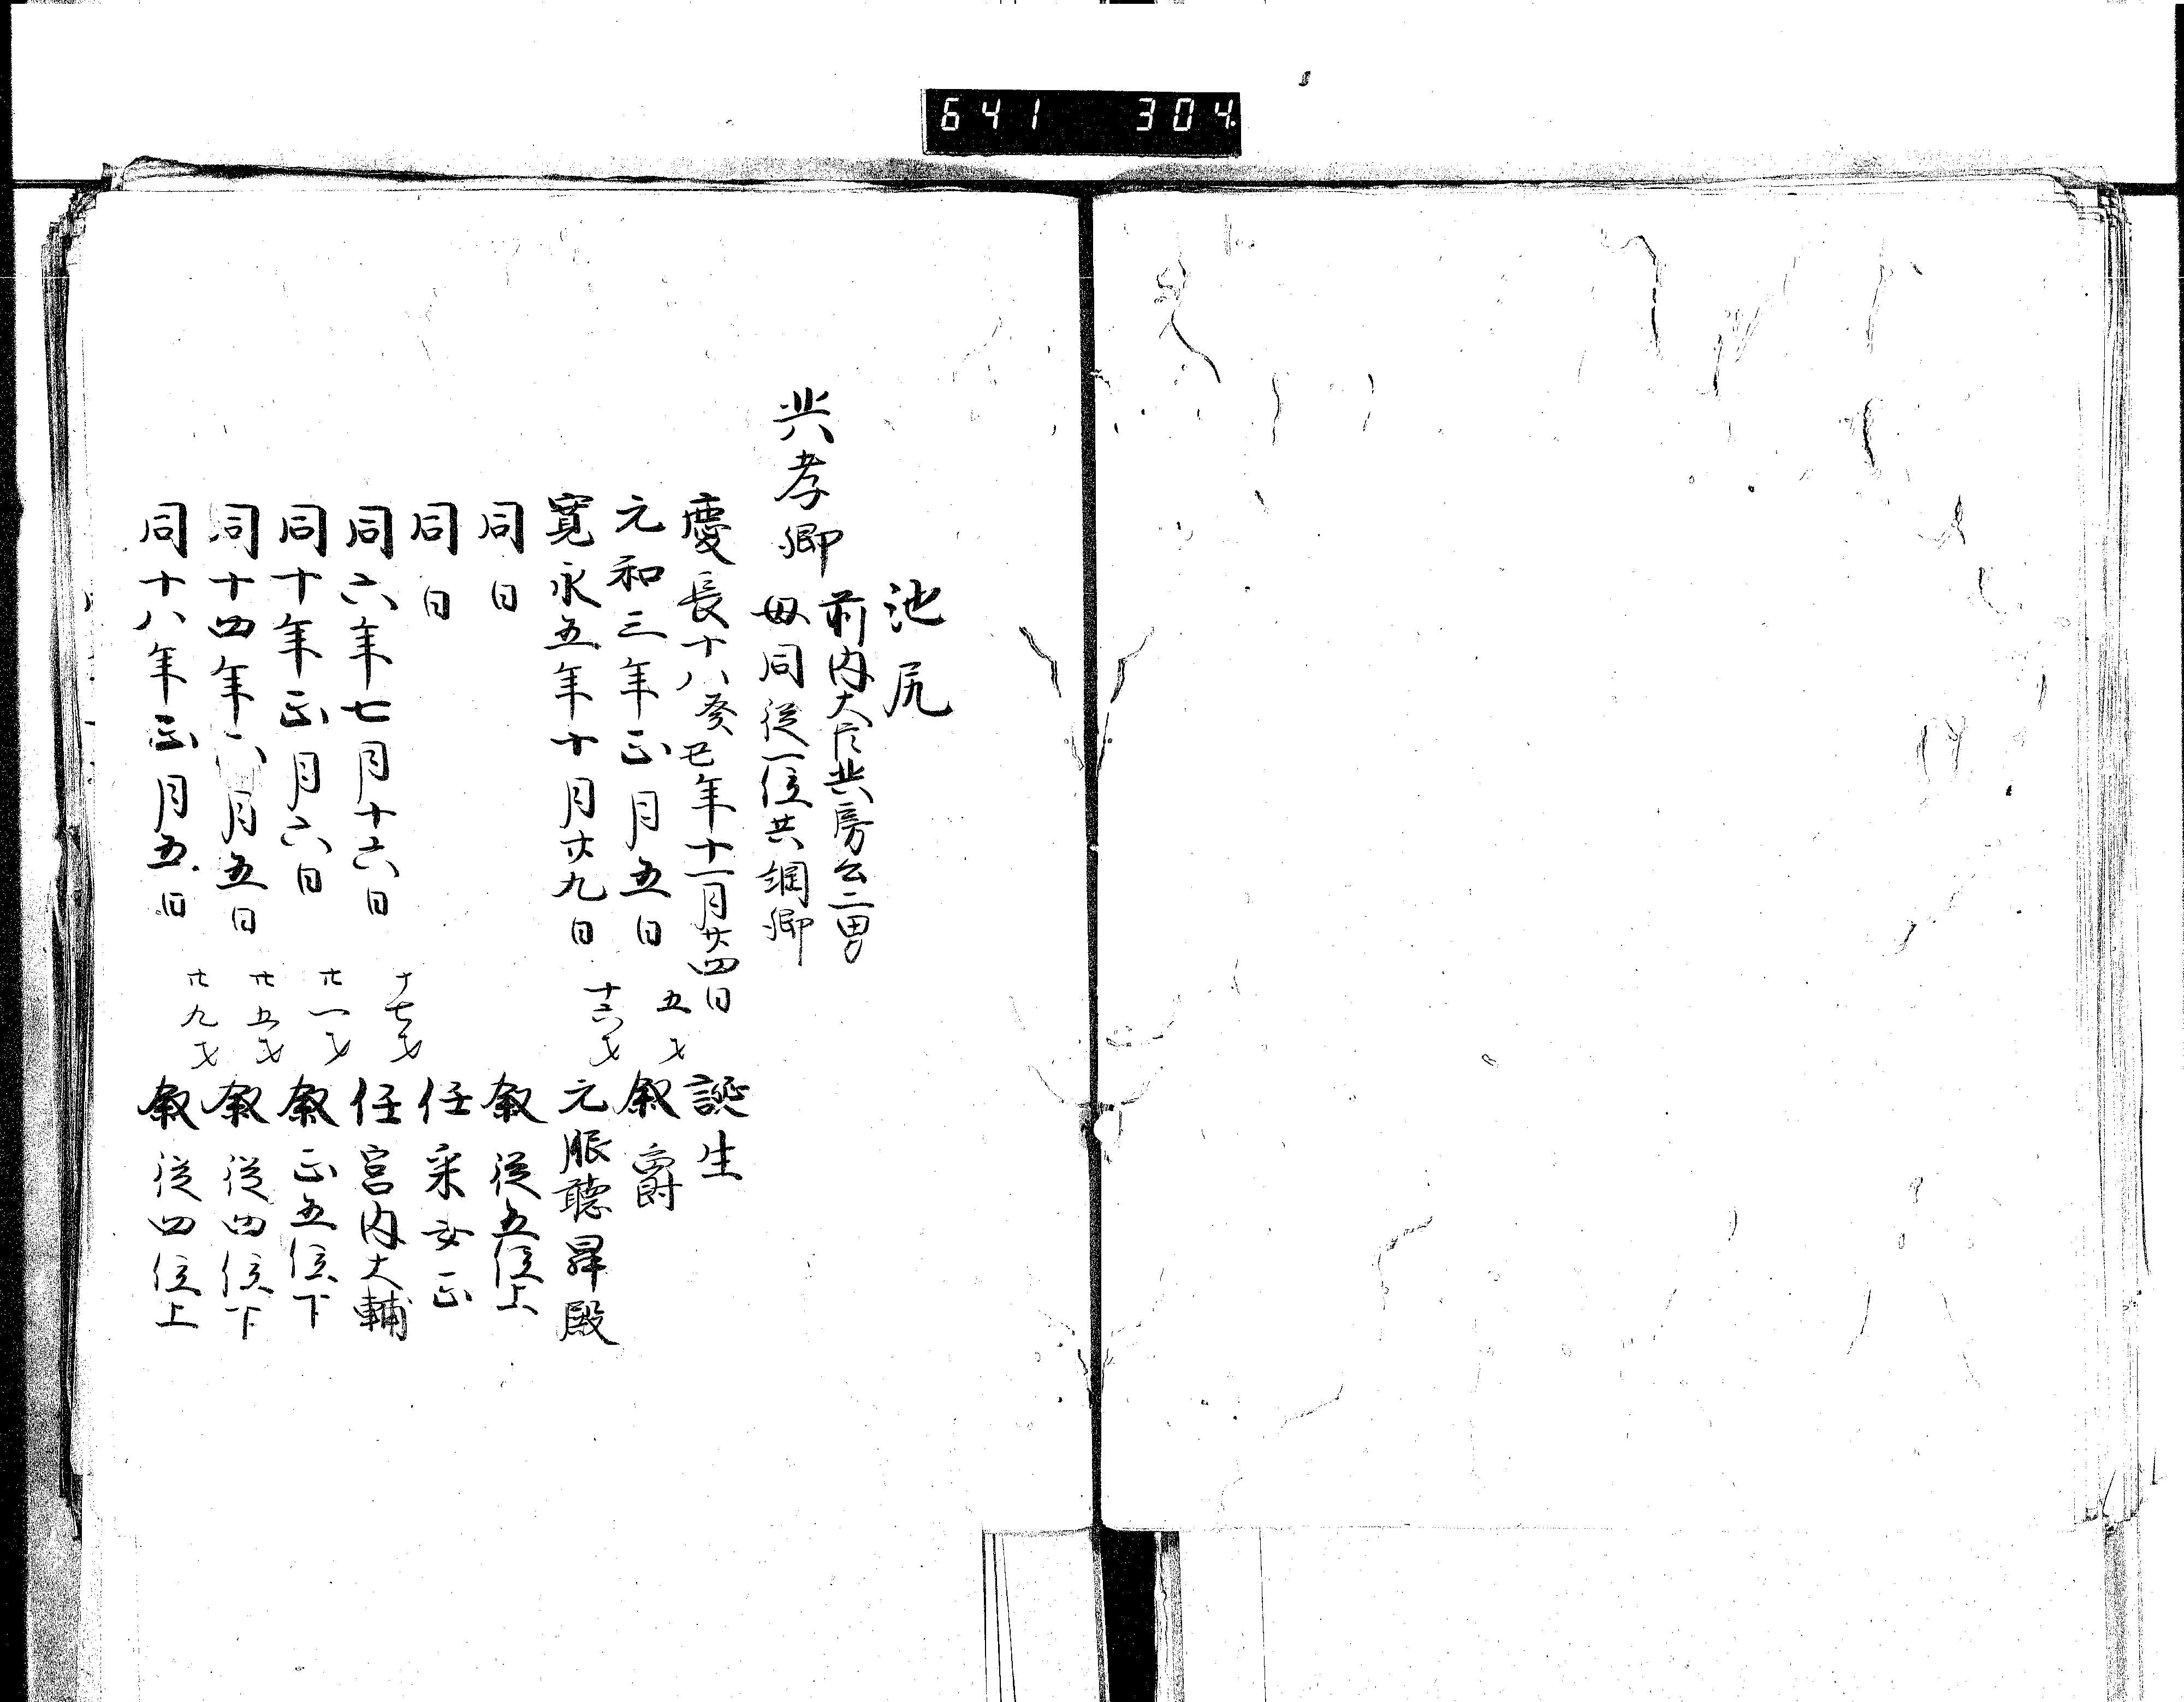 641 304
池尻
共孝卿 前内大臣共房公二男
母同従一位共綱卿
慶長十八癸丑年十一月廿四日 誕生
元和三年正月五日 五才 叙爵
寛永五年十月廿九日 十六才 元服聴昇殿
同日 叙従五位上
同日 任采女正
同六年七月十六日 十七才 任宮内大輔
同十年正月六日 廿一才 叙正五位下
同十四年 月五日 廿五才 叙従四位下
同十八年正月五日 廿九才 叙従四位上